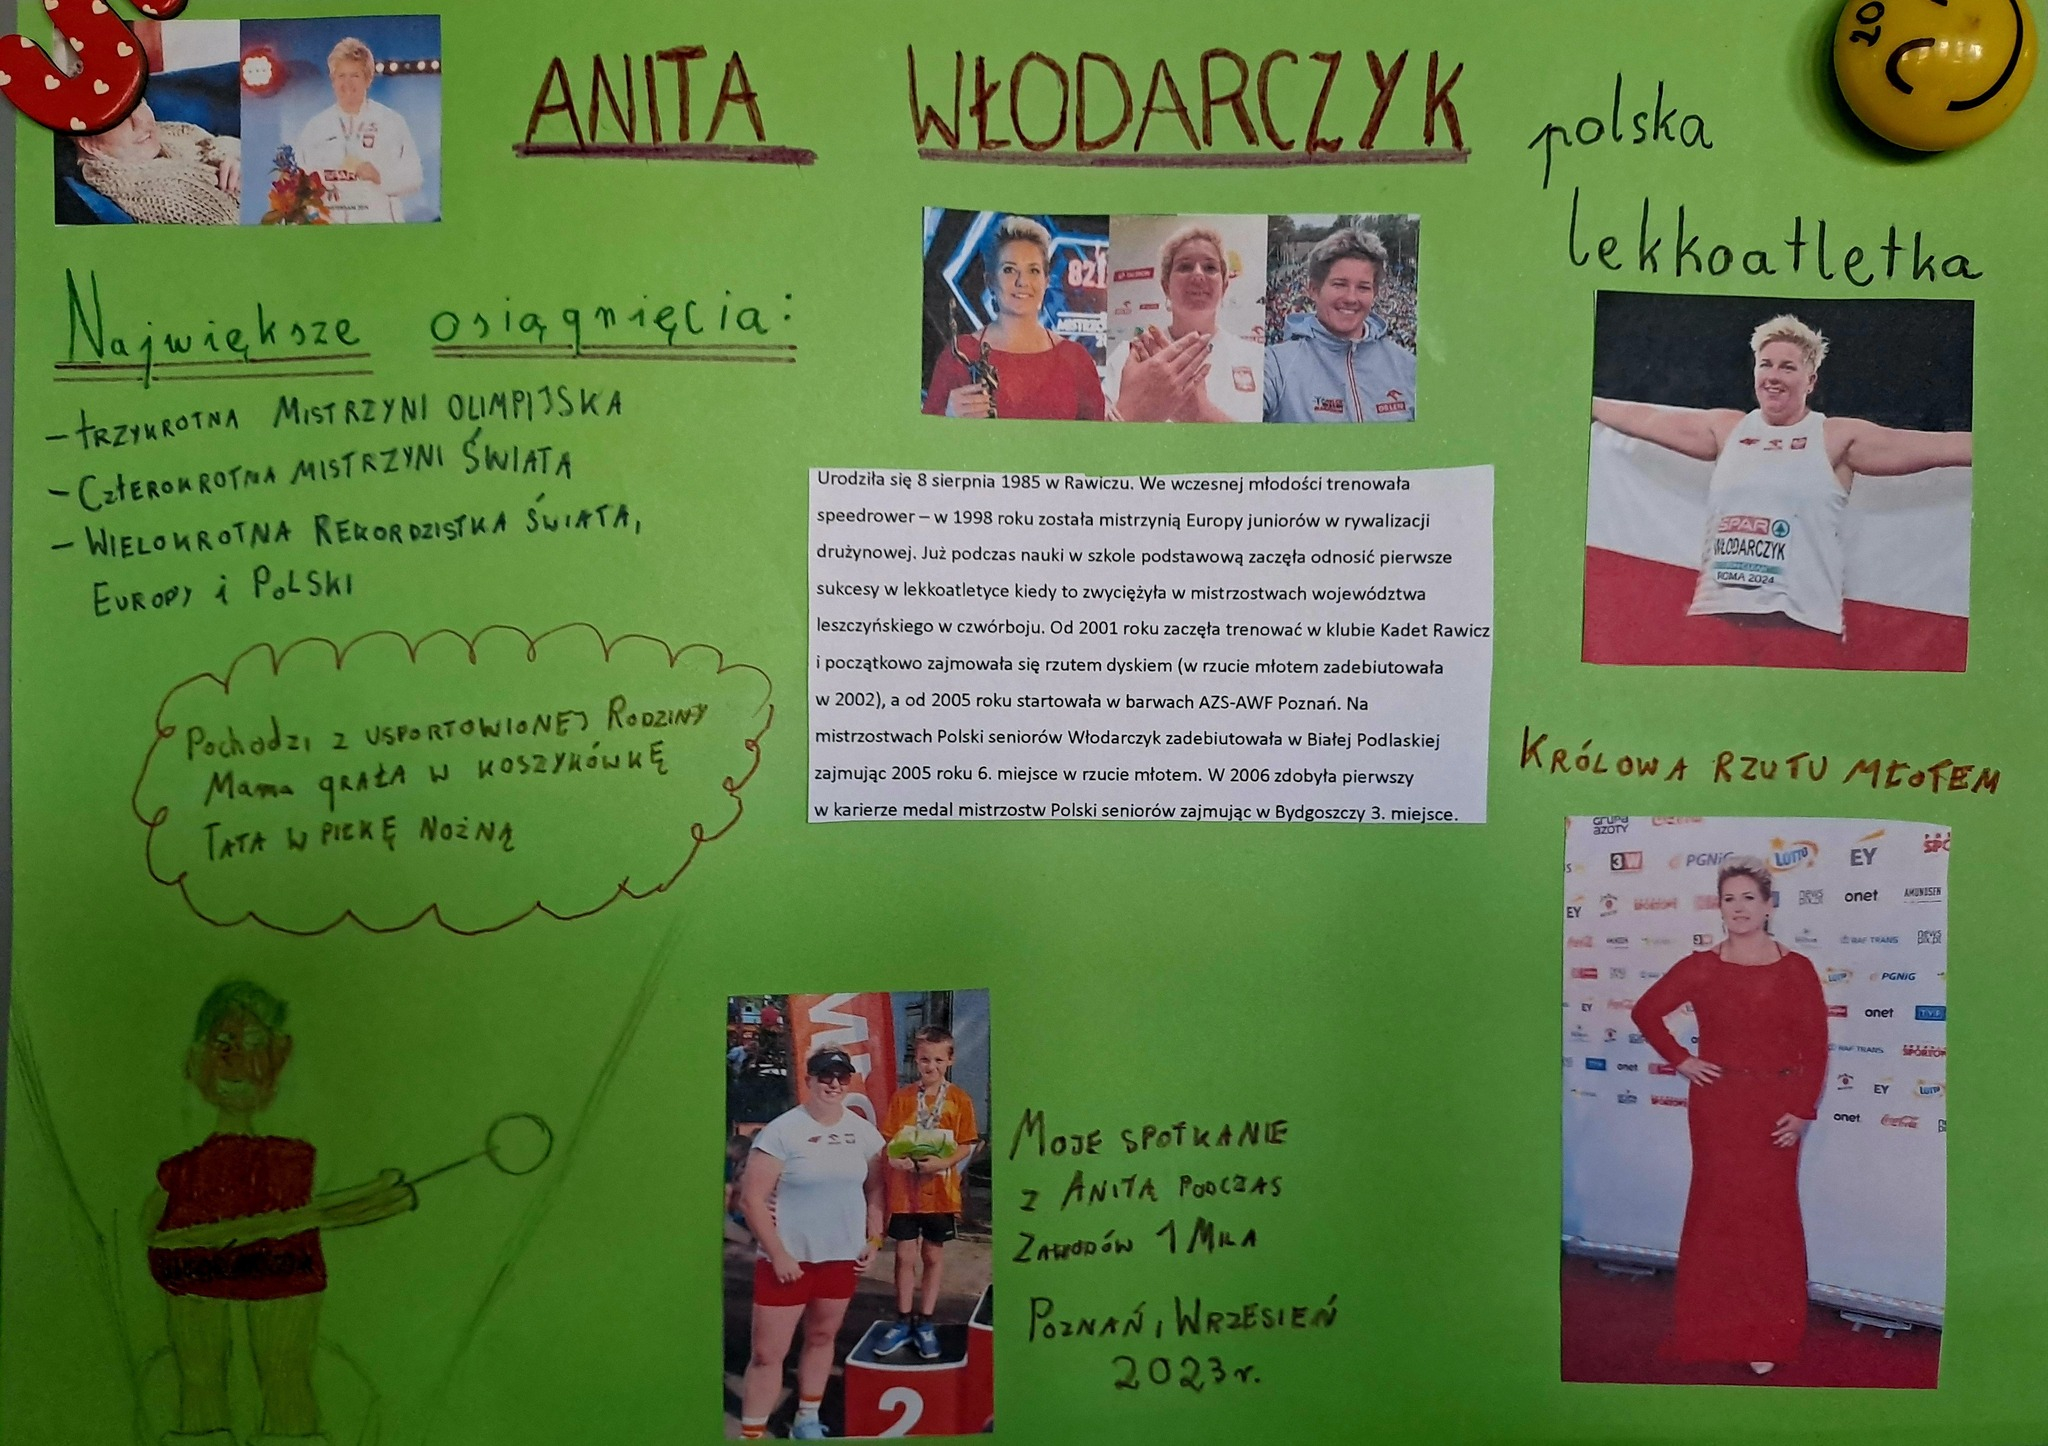 ANITA WŁODARCZYK
polska
lekkoatletka
Największe osiągnięcia:
– TRZYKROTNA MISTRZYNI OLIMPIJSKA
– CZTEROKROTNA MISTRZYNI ŚWIATA
– WIELOKROTNA REKORDZISTKA ŚWIATA,
EUROPY i POLSKI
Pochodzi z USPORTOWIONEJ RODZINY
Mama GRAŁA W KOSZYKÓWKĘ
TATA W PIŁKĘ NOŻNĄ
Urodziła się 8 sierpnia 1985 w Rawiczu. We wczesnej młodości trenowała
speedrower – w 1998 roku została mistrzynią Europy juniorów w rywalizacji
drużynowej. Już podczas nauki w szkole podstawową zaczęła odnosić pierwsze
sukcesy w lekkoatletyce kiedy to zwyciężyła w mistrzostwach województwa
leszczyńskiego w czwórboju. Od 2001 roku zaczęła trenować w klubie Kadet Rawicz
i początkowo zajmowała się rzutem dyskiem (w rzucie młotem zadebiutowała
w 2002), a od 2005 roku startowała w barwach AZS-AWF Poznań. Na
mistrzostwach Polski seniorów Włodarczyk zadebiutowała w Białej Podlaskiej
zajmując 2005 roku 6. miejsce w rzucie młotem. W 2006 zdobyła pierwszy
w karierze medal mistrzostw Polski seniorów zajmując w Bydgoszczy 3. miejsce.
SPAR
WŁODARCZYK
ROMA 2024
KRÓLOWA RZUTU MŁOTEM
GRUPA AZOTY
3W PGNiG LOTTO EY
onet AMUNDSEN
EY
RAF TRANS
PGNiG
EY onet
RAF TRANS
onet
EY
onet
MOJE SPOTKANIE
Z ANITĄ PODCZAS
ZAWODÓW 1 MILA
POZNAŃ, WRZESIEŃ
2023r.
2
SPAR
ORLEN
20